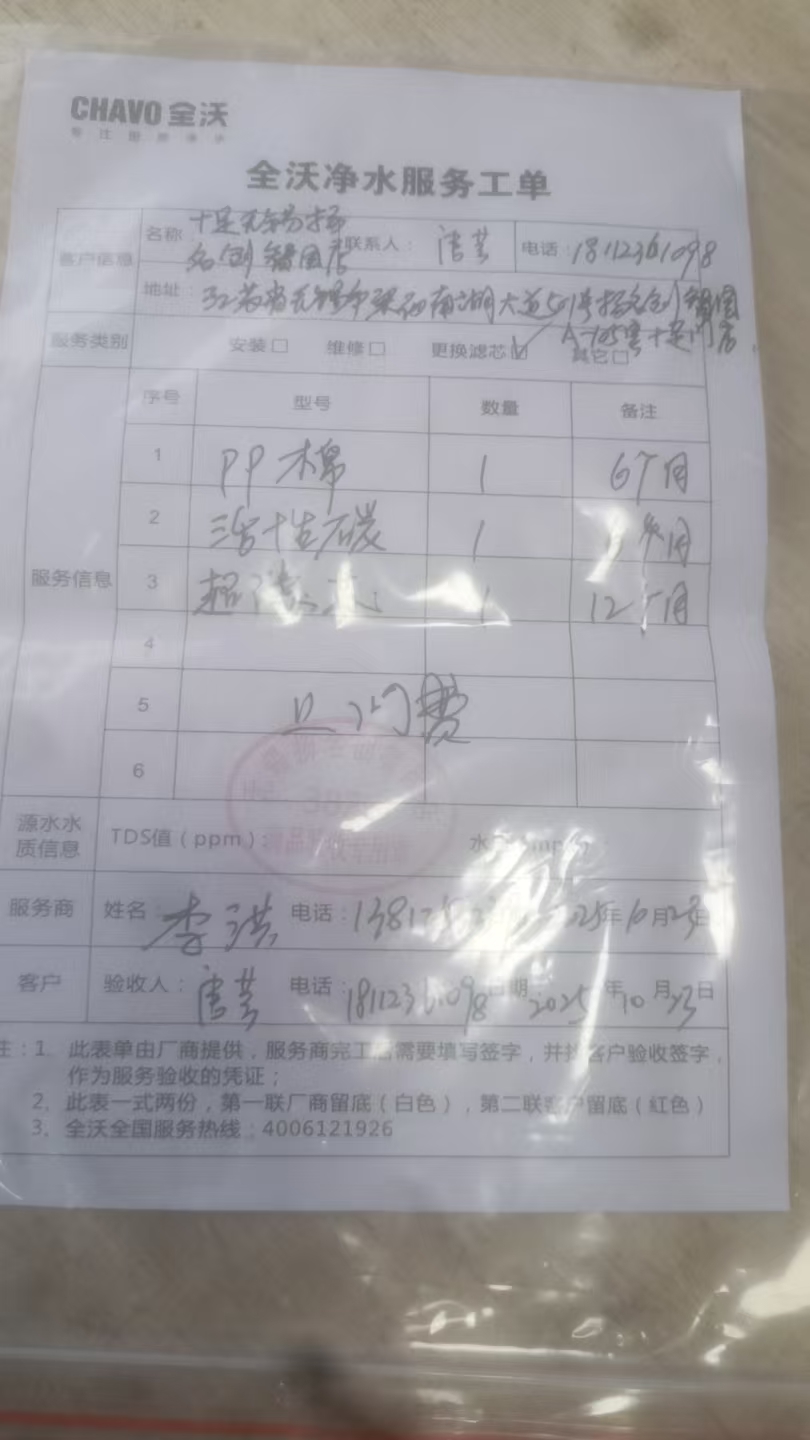 CHAVO 全沃
全沃净水服务工单
客户信息 名称：十足无锡扬名创智园店 联系人：唐芸 电话：18112361098
地址：江苏省无锡市梁溪南湖大道501号扬名创智园A-105号十足门店
服务类别 安装□ 维修□ 更换滤芯☑ 其它□
服务信息 序号 型号 数量 备注
1 PP棉 1 6个月
2 活性碳 1 个月
3 超滤 1 12个月
4
5 上门费
6
源水水质信息 TDS值（ppm）：
服务商 姓名：李洪 电话：13817 25年10月23日
客户 验收人：唐芸 电话：18112361098 日期 2025年10月23日
注：1、此表单由厂商提供，服务商完工后需要填写签字，并找客户验收签字，
作为服务验收的凭证；
2、此表一式两份，第一联厂商留底（白色），第二联客户留底（红色）
3、全沃全国服务热线：4006121926